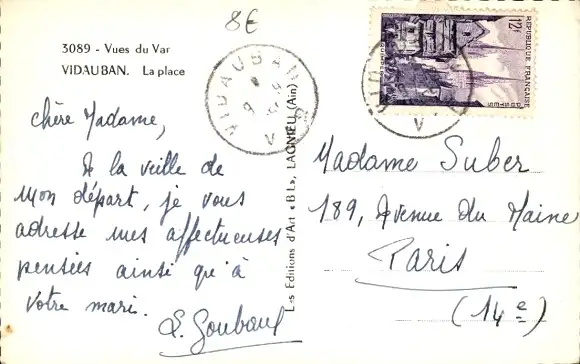 8€
3089 - Vues du Var
VIDAUBAN. La place
VIDAUBAN
Chère Madame,
A la veille de
mon départ, je vous
adresse mes affectueuses
pensées ainsi qu'à
votre mari.
Les Editions d'Art « BL », LAGNIEU (Ain)
REPUBLIQUE FRANÇAISE
POSTES
12f
Madame Suber
189, Avenue du Maine
Paris
(14e)